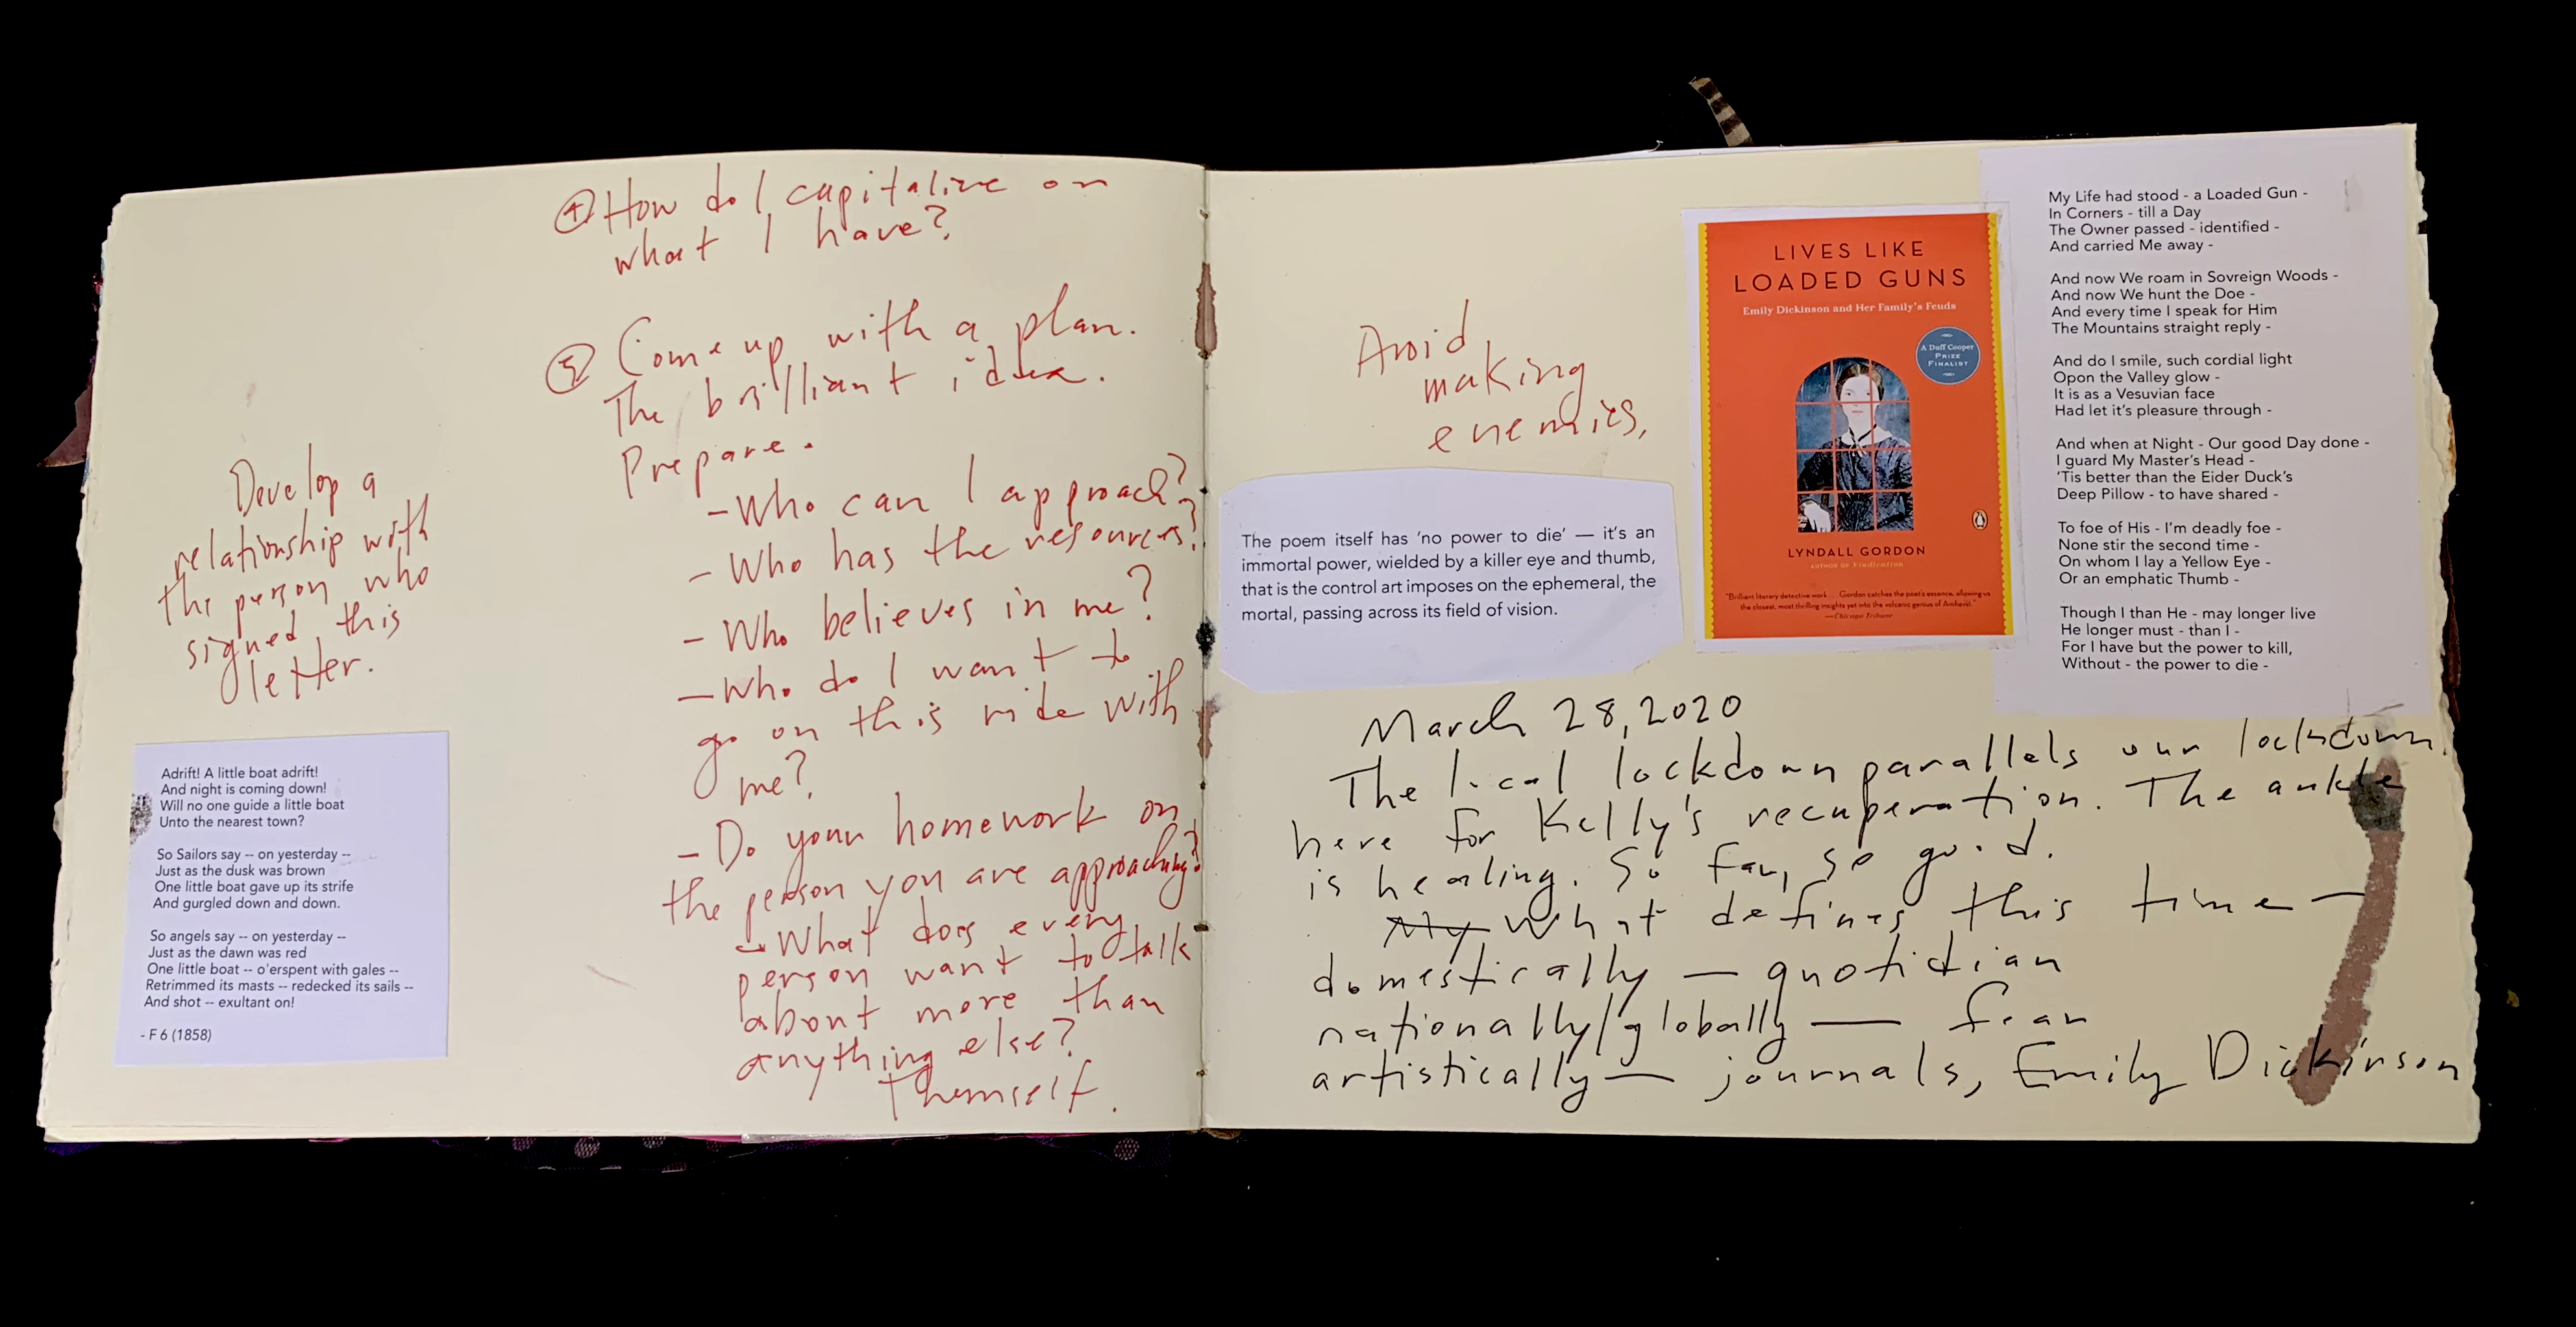 ④ How do I capitalize on
what I have?
⑤ Come up with a plan.
The brilliant idea.
Prepare.
- Who can I approach?
- Who has the resources?
- Who believes in me?
- Who do I want to
go on this ride with
me?
- Do your homework on
the person you are approaching?
→ What does every
person want to talk
about more than
anything else?
Themself.
Develop a
relationship with
the person who
signed this
letter.
Adrift! A little boat adrift!
And night is coming down!
Will no one guide a little boat
Unto the nearest town?
So Sailors say -- on yesterday --
Just as the dusk was brown
One little boat gave up its strife
And gurgled down and down.
So angels say -- on yesterday --
Just as the dawn was red
One little boat -- o'erspent with gales --
Retrimmed its masts -- redecked its sails --
And shot -- exultant on!
- F 6 (1858)
Avoid
making
enemies,
The poem itself has 'no power to die' — it's an
immortal power, wielded by a killer eye and thumb,
that is the control art imposes on the ephemeral, the
mortal, passing across its field of vision.
LIVES LIKE
LOADED GUNS
Emily Dickinson and Her Family's Feuds
A Duff Cooper
PRIZE
FINALIST
LYNDALL GORDON
AUTHOR OF Vindication
"Brilliant literary detective work . . . Gordon catches the poet's essence, allowing us
the closest, most thrilling insights yet into the volcanic genius of Amherst."
—Chicago Tribune
My Life had stood - a Loaded Gun -
In Corners - till a Day
The Owner passed - identified -
And carried Me away -
And now We roam in Sovreign Woods -
And now We hunt the Doe -
And every time I speak for Him
The Mountains straight reply -
And do I smile, such cordial light
Opon the Valley glow -
It is as a Vesuvian face
Had let it's pleasure through -
And when at Night - Our good Day done -
I guard My Master's Head -
'Tis better than the Eider Duck's
Deep Pillow - to have shared -
To foe of His - I'm deadly foe -
None stir the second time -
On whom I lay a Yellow Eye -
Or an emphatic Thumb -
Though I than He - may longer live
He longer must - than I -
For I have but the power to kill,
Without - the power to die -
March 28, 2020
The local lockdown parallels our lockdown
here for Kelly's recuperation. The ankle
is healing. So far, so good.
My What defines this time —
domestically — quotidian
nationally/globally — fear
artistically — journals, Emily Dickinson